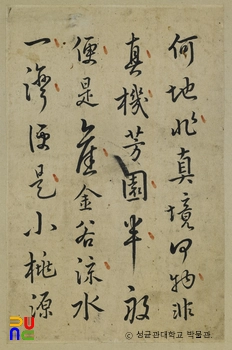 何地非真境何物非
真機芳園半畝
便是舊金谷流水
一灣便是小桃源
© 성균관대학교 박물관